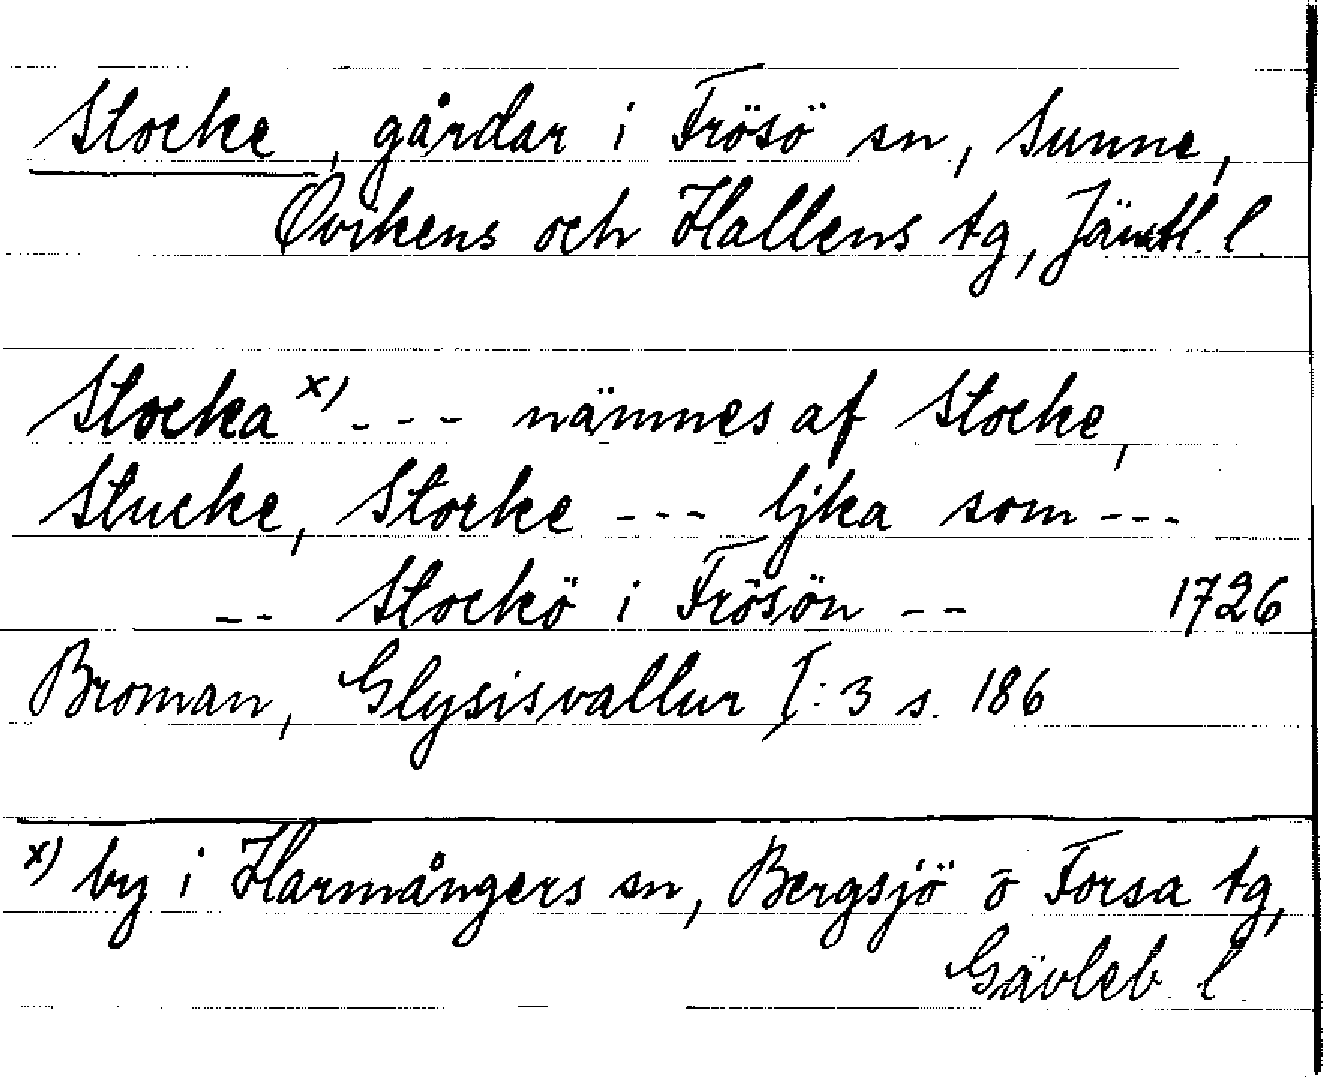 Stocke, gårdar i Frösö sn, Sunne,
Ovikens och Hallens tg, Jämtl. l.
Stocka x) - - - nämnes af Stocke,
Stucke, Storke - - - ljka som - - -
- - Stockö i Frösön - - 1726
Broman, Glysisvallur I:3 s. 186
x) by i Harmångers sn, Bergsjö o Forsa tg,
Gävleb. l.